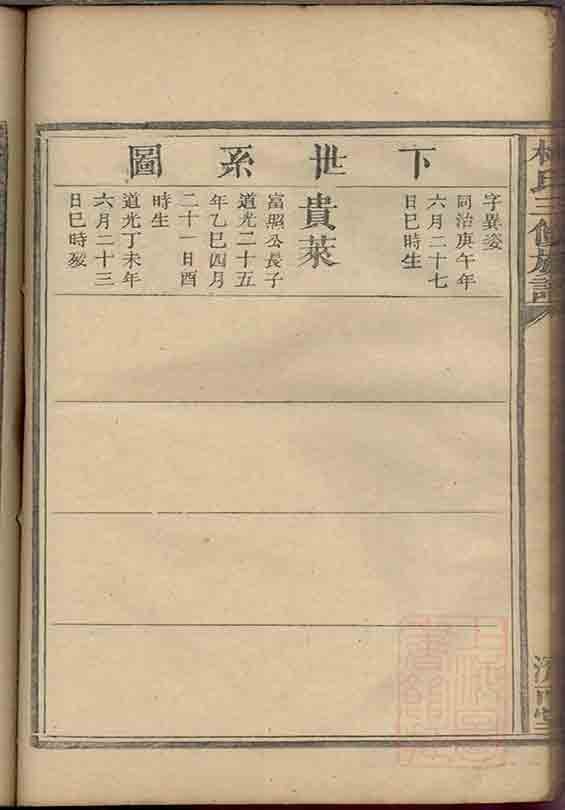 下世系圖
字異姿
同治庚午年
六月二十七
日巳時生
貴萊
富照公長子
道光二十五
年乙巳四月
二十一日酉
時生
道光丁未年
六月二十三
日巳時歿
氏三修族譜